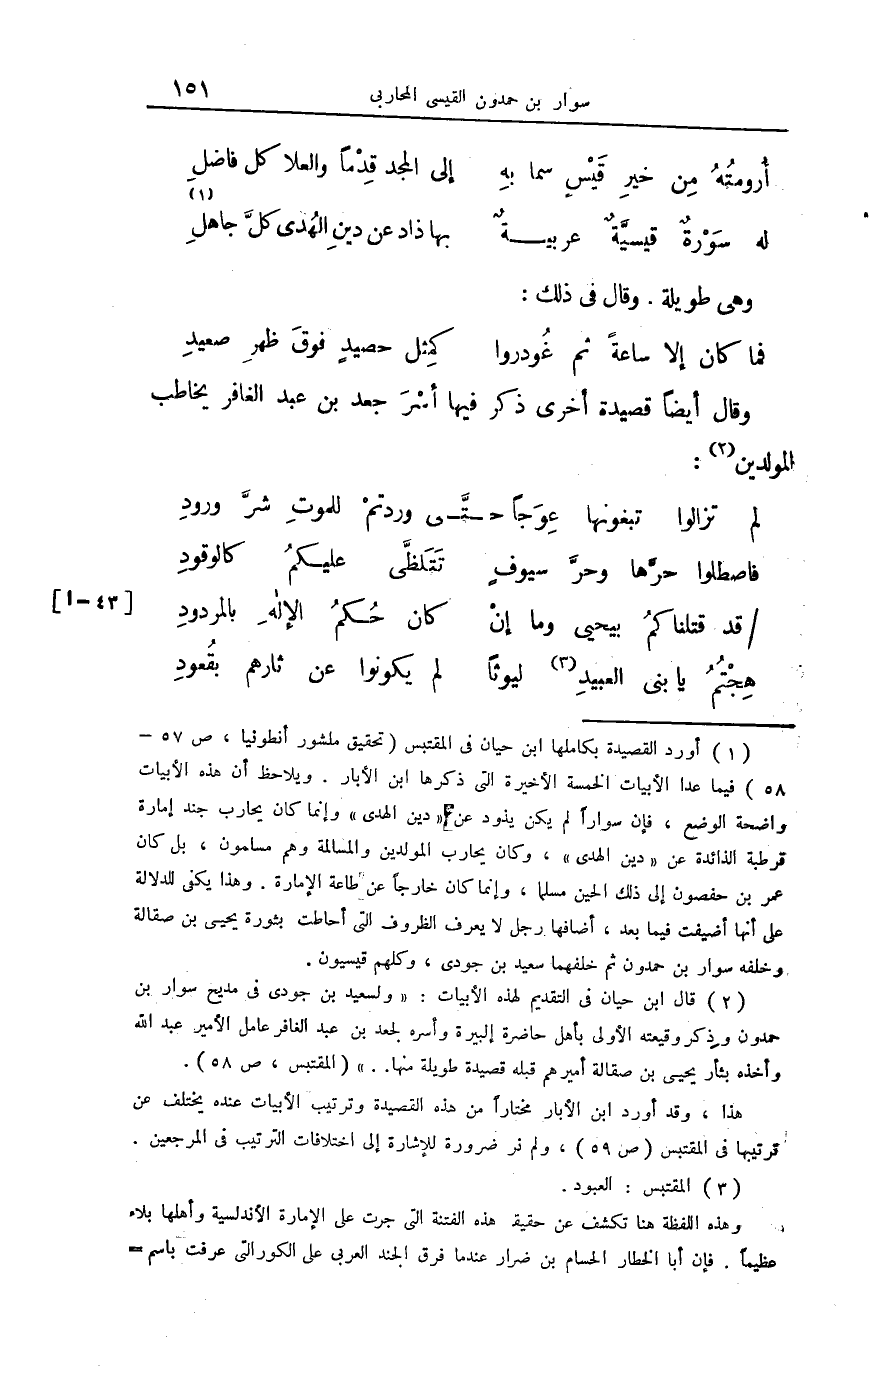 سوّار بن حمدون القيسى المحاربى ١٥١
أُرومتُهُ مِن خيرِ قَيْسٍ سما بهِ إلى المجد قِدْماً والعلا كل فاضلِ
له سَوْرةٌ قيسيَّةٌ عربيـــةٌ بها ذاد عن دينِ الهُدى كلَّ جاهلِ (١)
وهى طويلة . وقال فى ذلك :
فما كان إلا ساعةً ثم غُودروا كمِثل حصيدٍ فوقَ ظهرِ صعيدِ
وقال أيضاً قصيدة أخرى ذكر فيها أسْرَ جعد بن عبد الغافر يخاطب
المولدين (٢) :
لم تزالوا تبغونها عِوَجاً حـتَّـى وردتمْ للموتِ شرَّ ورودِ
فاصطلوا حرَّها وحرَّ سيوفٍ تَتَلظَّى عليـكمُ كالوقودِ
/ قد قتلناكمُ بيحيى وما إنْ كان حُـكمُ الإلٰهِ بالمردودِ [٤٣-ا]
هِجْتُمُ يا بنى العبيدِ (٣) ليوثاً لم يكونوا عن ثارهم بقُعودِ
( ١ ) أورد القصيدة بكاملها ابن حيان فى المقتبس ( تحقيق ملشور أنطونيا ، ص ٥٧ –
٥٨ ) فيما عدا الأبيات الخمسة الأخيرة التى ذكرها ابن الأبار . ويلاحظ أن هذه الأبيات
واضحة الوضع ، فإن سواراً لم يكن يذود عن « دين الهدى » وإنما كان يحارب جند إمارة
قرطبة الذائدة عن « دين الهدى » ، وكان يحارب المولدين والمسالمة وهم مسلمون ، بل كان
عمر بن حفصون إلى ذلك الحين مسلما ، وإنما كان خارجاً عن طاعة الإمارة . وهذا يكفى للدلالة
على أنها أضيفت فيما بعد ، أضافها رجل لا يعرف الظروف التى أحاطت بثورة يحيى بن صقالة
وخلفه سوار بن حمدون ثم خلفهما سعيد بن جودى ، وكلهم قيسيون .
( ٢ ) قال ابن حيان فى التقديم لهذه الأبيات : « ولسعيد بن جودى فى مديح سوار بن
حمدون وذكر وقيعته الأولى بأهل حاضرة إلبيرة وأسره لجعد بن عبد الغافر عامل الأمير عبد الله
وأخذه بثأر يحيى بن صقالة أميرهم قبله قصيدة طويلة منها. . » ( المقتبس ، ص ٥٨ ) .
هذا ، وقد أورد ابن الأبار مختاراً من هذه القصيدة وترتيب الأبيات عنده يختلف عن
ترتيبها فى المقتبس ( ص ٥٩ ) ، ولم نر ضرورة للإشارة إلى اختلافات الترتيب فى المرجعين .
( ٣ ) المقتبس : العبود .
وهذه اللفظة هنا تكشف عن حقيقة هذه الفتنة التى جرت على الإمارة الأندلسية وأهلها بلاء
عظيماً . فإن أبا الخطار الحسام بن ضرار عندما فرق الجند العربى على الكور التى عرفت باسم =